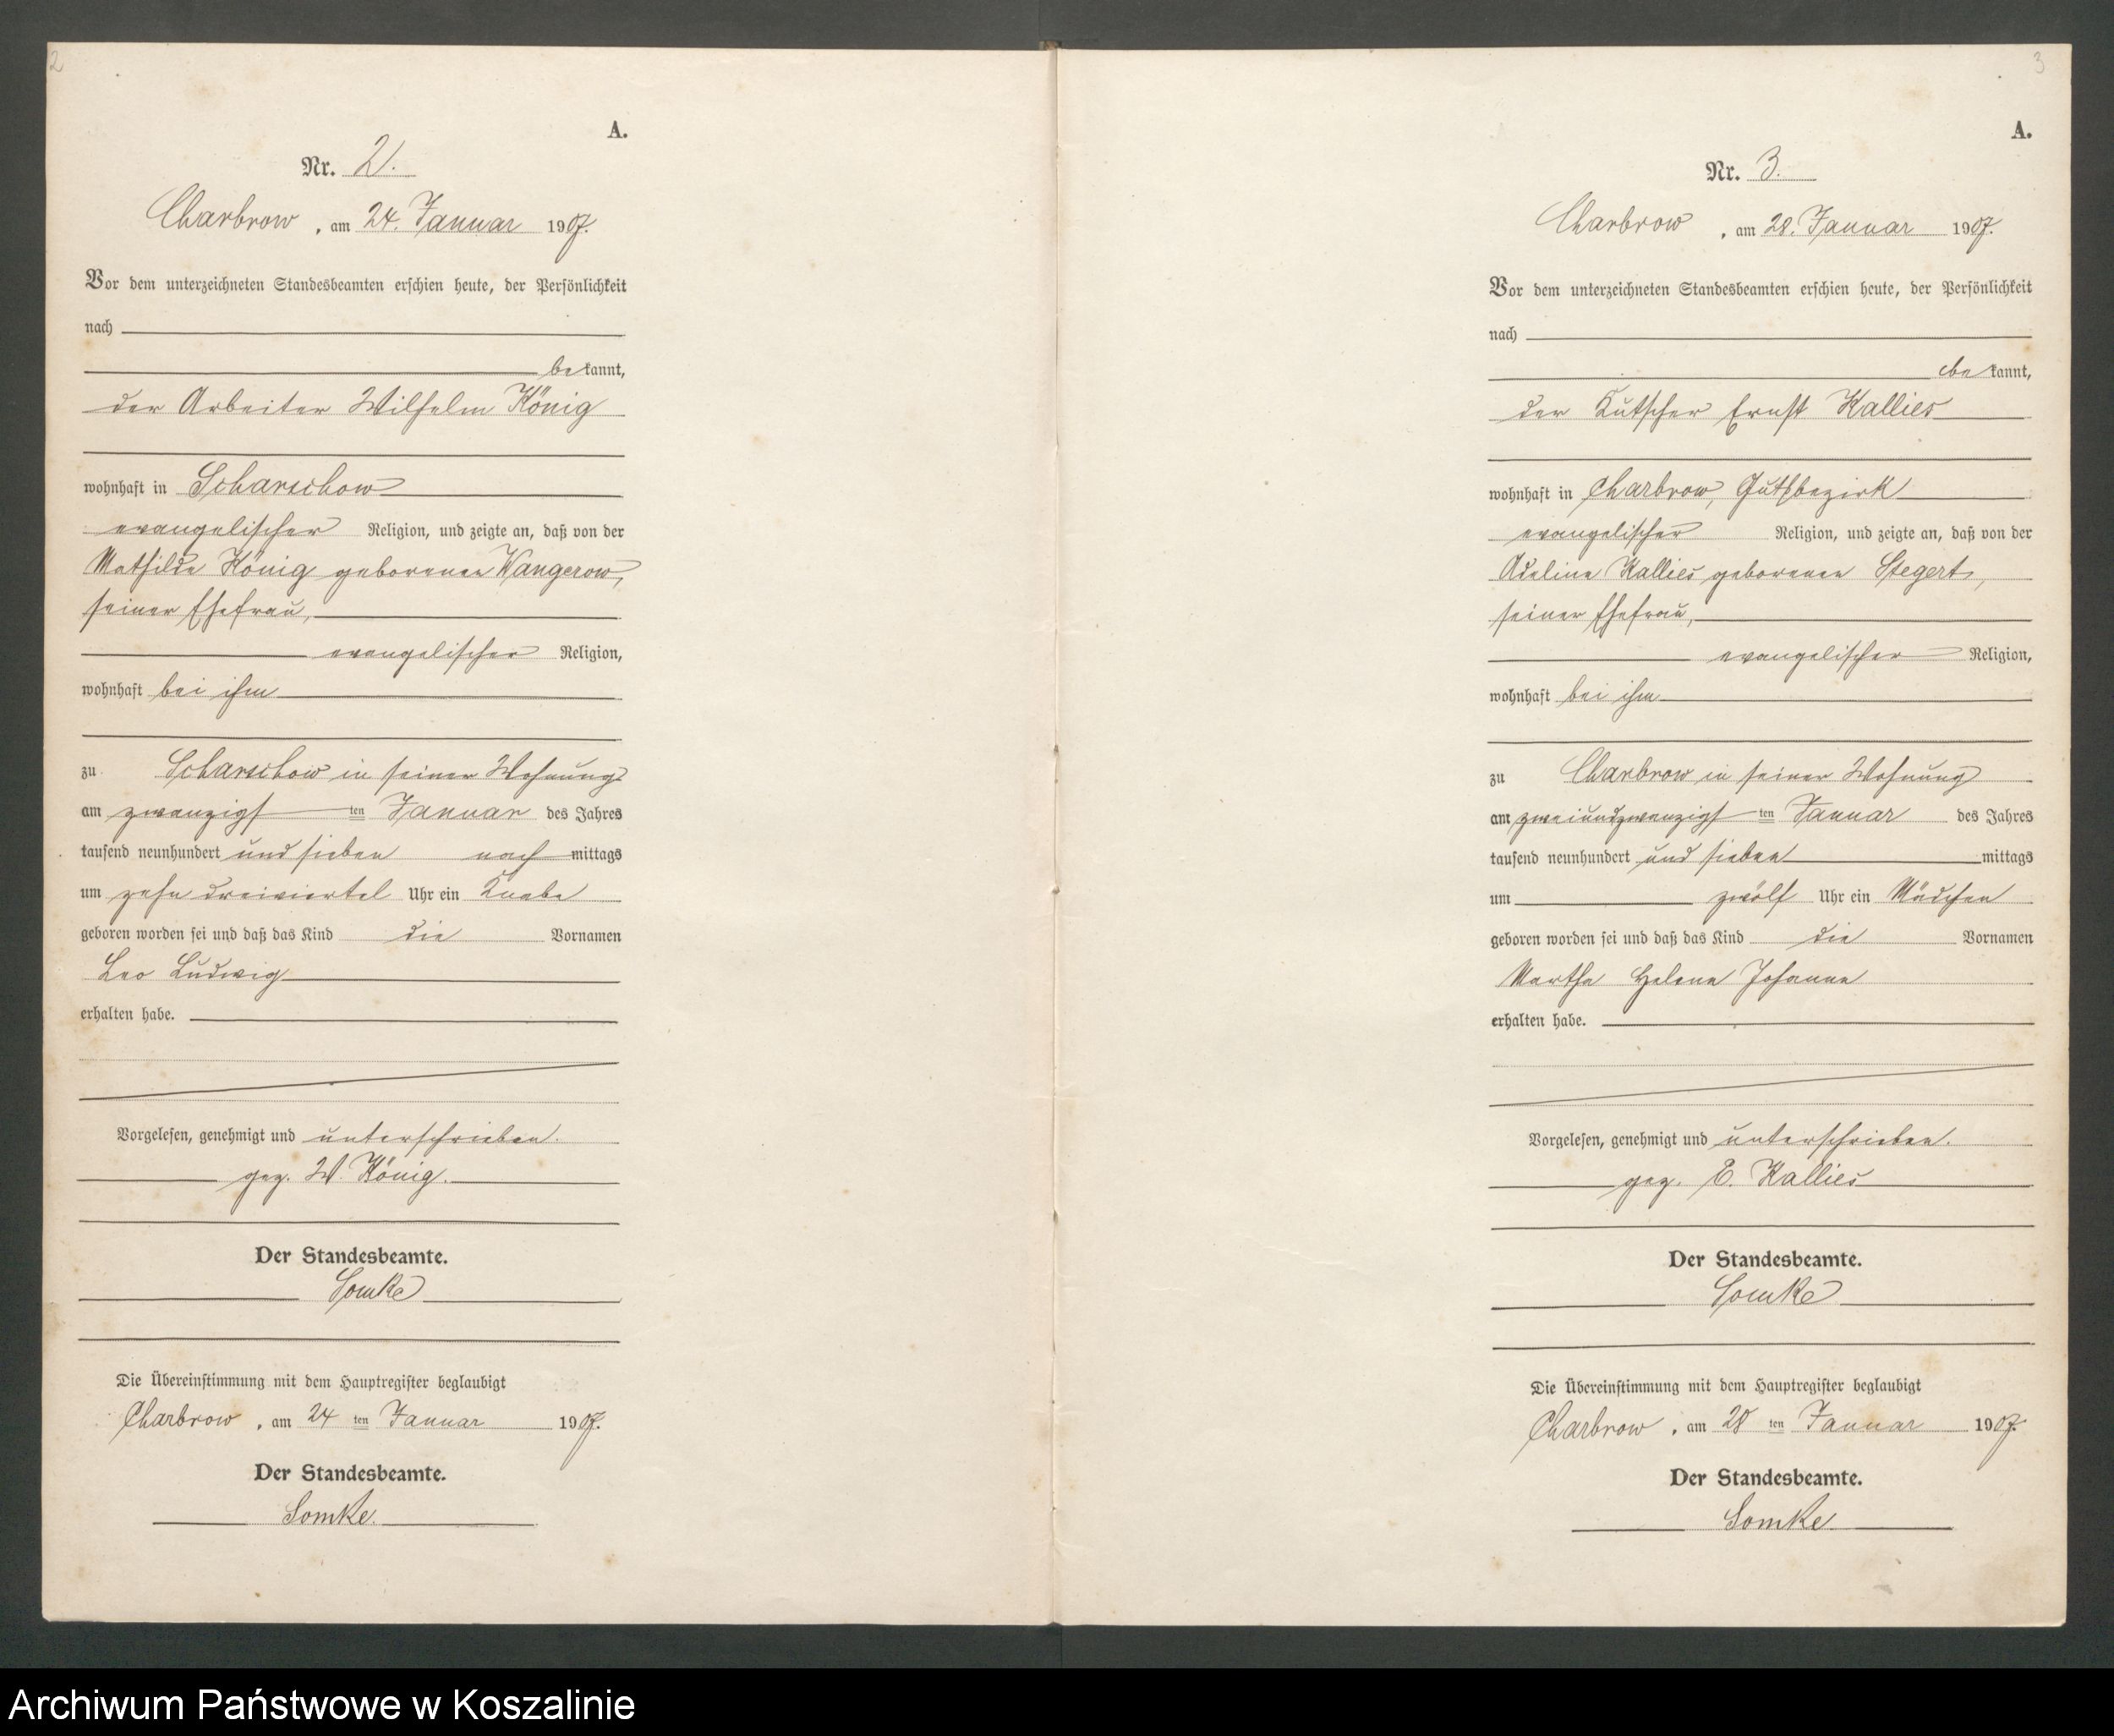 2
A.
Nr. 2.
Charbrow, am 24. Januar 1907.
Vor dem unterzeichneten Standesbeamten erschien heute, der Persönlichkeit
nach
bekannt,
der Arbeiter Wilhelm König
wohnhaft in Scharschow
evangelischer Religion, und zeigte an, daß von der
Mathilde König geborenen Wangerow,
seiner Ehefrau,
evangelischer Religion,
wohnhaft bei ihm
zu Scharschow in seiner Wohnung
am zwanzigsten Januar des Jahres
tausend neunhundert und sieben nachmittags
um zehn dreiviertel Uhr ein Knabe
geboren worden sei und daß das Kind die Vornamen
Leo Ludwig
erhalten habe.
Vorgelesen, genehmigt und unterschrieben.
gez. W. König.
Der Standesbeamte.
Somke
Die Übereinstimmung mit dem Hauptregister beglaubigt
Charbrow, am 24ten Januar 1907.
Der Standesbeamte.
Somke.
3
A.
Nr. 3.
Charbrow, am 28. Januar 1907.
Vor dem unterzeichneten Standesbeamten erschien heute, der Persönlichkeit
nach
bekannt,
der Kutscher Ernst Kallies
wohnhaft in Charbrow, Gutsbezirk
evangelischer Religion, und zeigte an, daß von der
Adeline Kallies geborenen Stegert,
seiner Ehefrau,
evangelischer Religion,
wohnhaft bei ihm
zu Charbrow in seiner Wohnung
am zweiundzwanzigsten Januar des Jahres
tausend neunhundert und sieben mittags
um zwölf Uhr ein Mädchen
geboren worden sei und daß das Kind die Vornamen
Martha Helene Johanne
erhalten habe.
Vorgelesen, genehmigt und unterschrieben.
gez. E. Kallies
Der Standesbeamte.
Somke
Die Übereinstimmung mit dem Hauptregister beglaubigt
Charbrow, am 28ten Januar 1907.
Der Standesbeamte.
Somke.
Archiwum Państwowe w Koszalinie